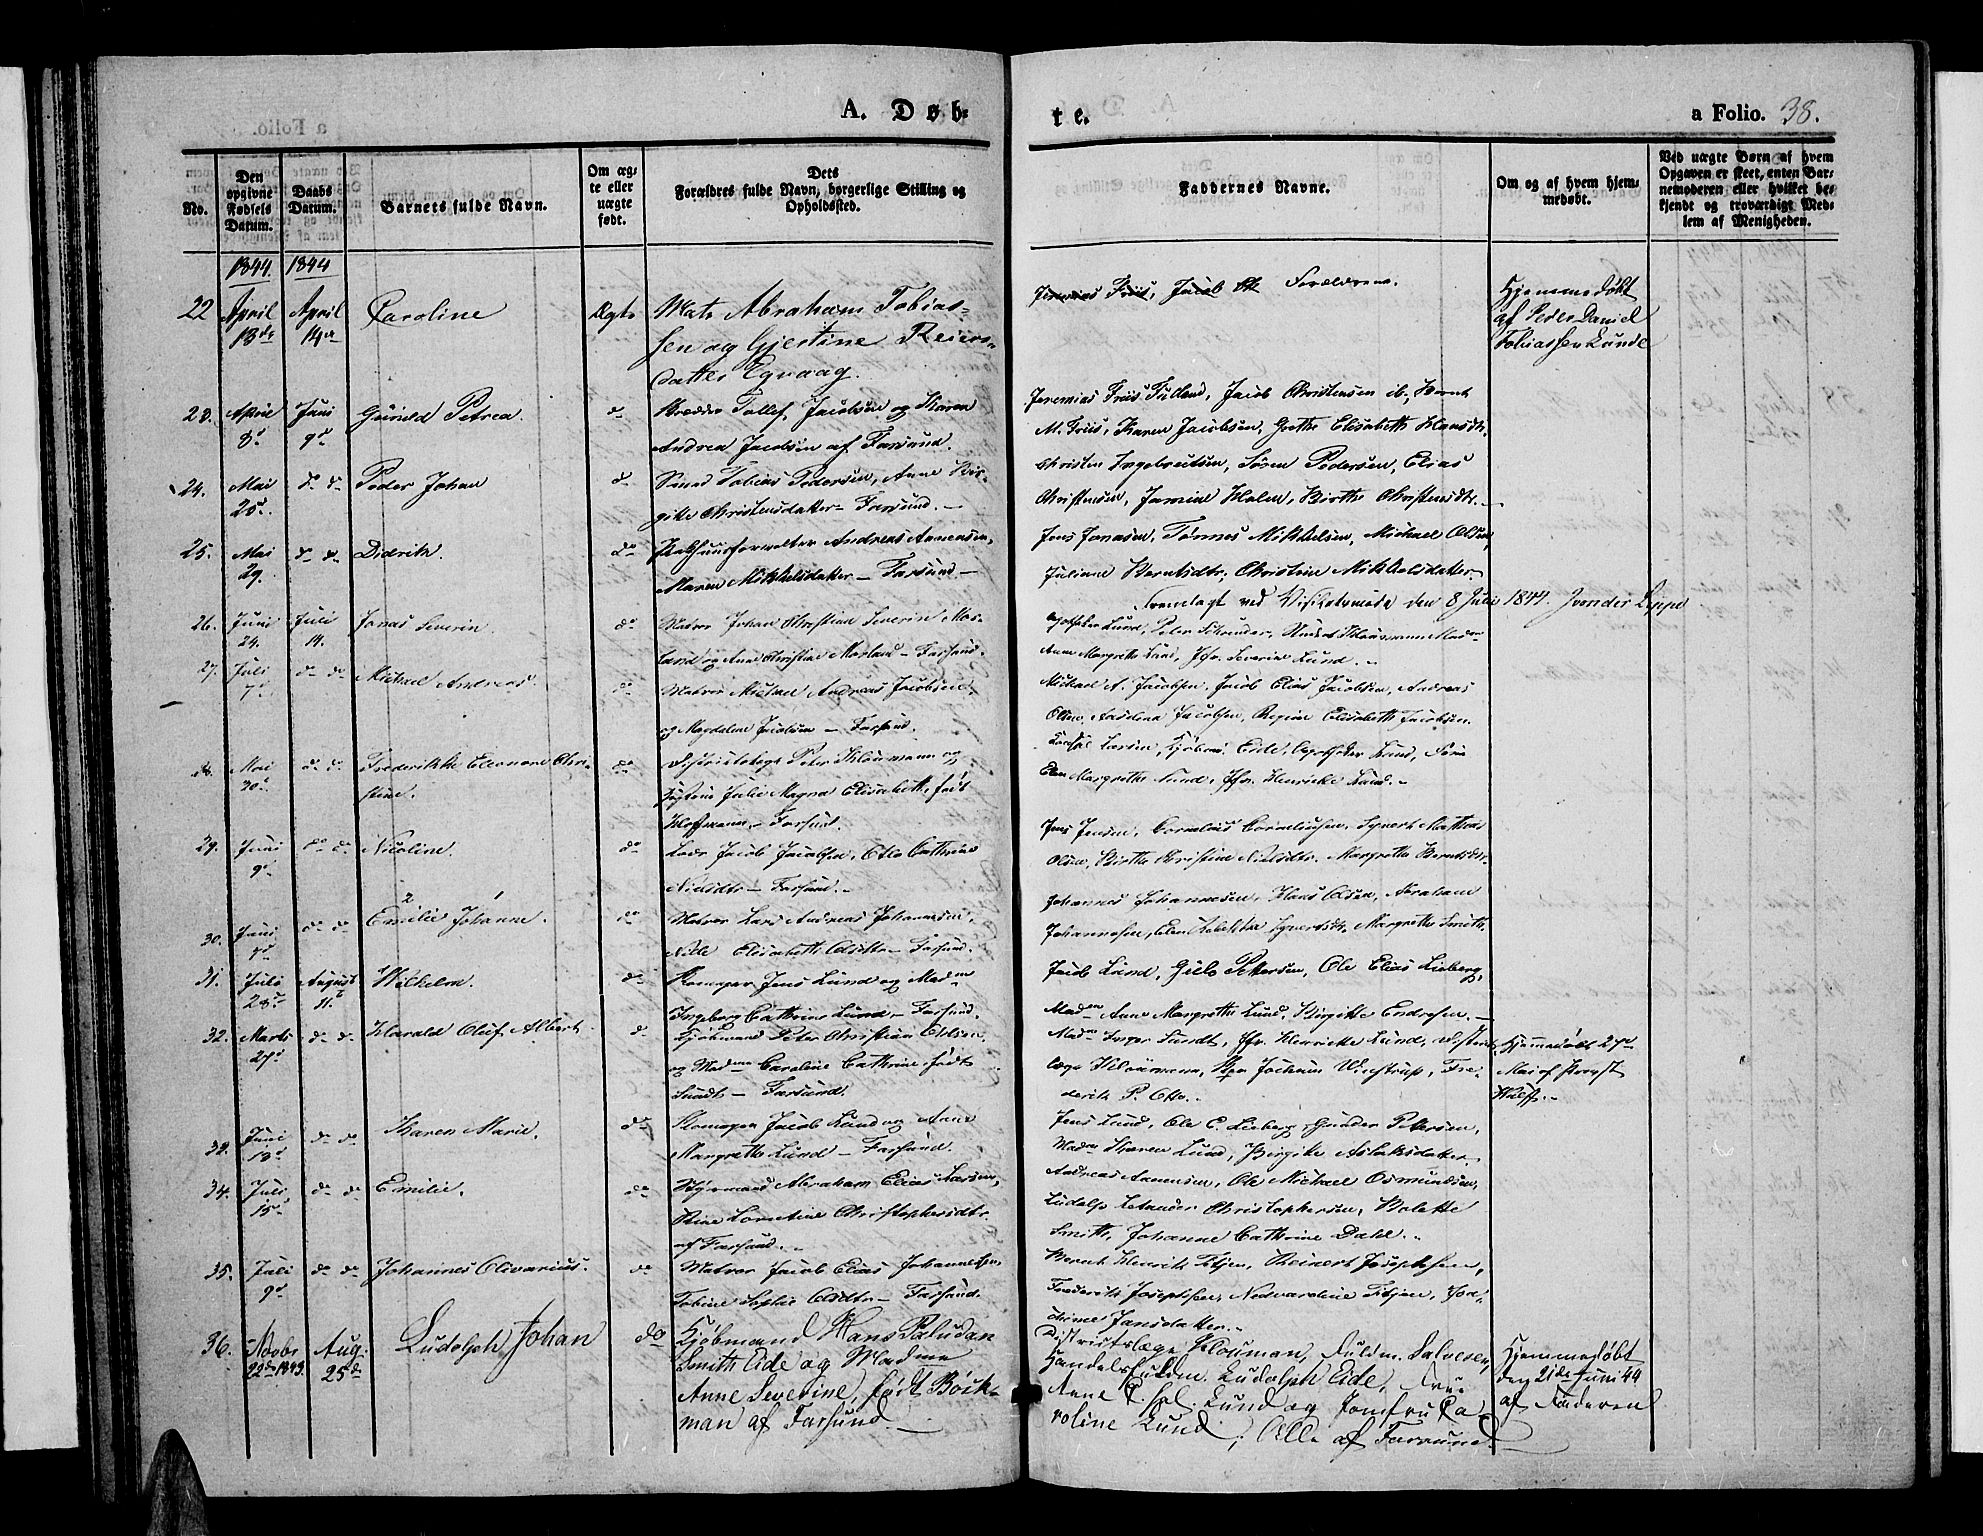 A. Døb-
te.
a Folio. 38.
No.
Den opgivne Fødsels Datum.
Daabs Datum.
Barnets fulde Navn.
Om ægte eller uægte født.
Dets Forældres fulde Navn, borgerlige Stilling og Opholdssted.
Faddernes Navne.
Om og af hvem hjemmedøbt.
Ved uægte Børn af hvem Opgaven er skeet, enten Barnemoderen eller hvilket bekjendt og troværdigt Medlem af Menigheden.
1844. 1844
22 April 13de April 14de Caroline Ægte Mats Abraham Tobias-
sen og Gjertine Reiers-
datter Egvaag.
Jeremias Friis, Jacob Forældrene.
Hjemmedøbt
af Peder Daniel
Tobiassen Lunde
23. April 8d Juni 9d Gunild Petrea do Tollef Jacobsen og Karen
Andrea Jacobsen af Farsund.
Jeremias Friis Jacob Christensen ib., Bernt
M. Friis, Karen Jacobsen, Grethe Elisabeth Hansdtr.
24. Mai 25d do do Peder Johan do Smed Tobias Pedersen, Anne Bir-
gitte Christensdatter – Farsund.
Christen Ingebretsen, Søren Pedersen, Elias
Christensen, Jamine Holm, Birthe Christensdtr.
25. Mai 29. do do Didrik. do Pakhuusforvalter Andreas Aanensen,
Maren Mikkelsdatter – Farsund
Jens Jonasen, Tønnes Mikkelsen, Michael Olsen,
Juliane Berntsdtr, Christine Mikkelsdatter
Fremlagt ved Visitatsmøde den 8 Juli 1844.
26. Juni 24. Juli 14. Jonas Severin. do Matros Johan Christian Severin Mar-
land og Anne Christine Marland – Farsund.
Apotheker Lund, Peter Schrøder, Mad
Anne Margrethe Lund, Jfr. Severine Lund.
27. Juli 7d do do Michael Andreas. do Matros Michael Andreas Jacobsen
og Magdalene Jacobsen – Farsund.
Michael A. Jacobsen, Jacob Elias Jacobsen, Andreas
Olsen, Jacobsen, Regine Elisabeth Jacobsen.
28. Mai 30d do do Frederikke Eleonore Chri-
stine. do Districtslæge Peter Kloumann og
Julie Magna Elisabeth, født
Hoffmann – Farsund.
Larsen, Kjøbmd. Eide, Apotheker Lund,
Margrethe Lund, Jfr. Henrikke Lund.
29. Juni 9d do do Nicoline. do Lods Jacob Jacobsen, Cathrine
Nielsdtr – Farsund.
Jens Jensen, Cornelius Corneliussen, Syvert Mathias
Olsen, Birthe Christine Nielsdtr. Margrethe Berntsdtr.
30. Juni 7d do do Emilie Johanne. do Matros Lars Andreas Johannesen,
Nille Elisabeth Olsdtr – Farsund.
Johannes Johannesen, Hans Olsen, Abraham
Johannesen, Syvertsdtr. Margrethe Smith.
31. Juli 28d August 11d Wilhelm. do Jens Lund og Mad
Ingeborg Cathrine Lund – Farsund.
Jacob Lund, Giels Pettersen, Ole Elias Lieberg,
Mad Anne Margrethe Lund, Birgitte Endresen.
32. Marts 27d do do Harald Oluf Albert. do Kjøbmand Peter Christian Ottesen
og Mad Caroline Cathrine født
Sundt – Farsund.
Mad Inger Sundt, Jfr. Henrikke Lund, District
læge Kloumann, Jochum Winstrup, Fre-
derik P. Otto.
Hjemmedøbt 27de
Mai af Provst
Wulff.
33. Juni 13d do do Karen Marie. do Jacob Lund og Anne
Margrethe Lund – Farsund.
Jens Lund, Ole E. Lieberg, Gunder Petersen,
Mad Karen Lund, Birgitte Aslaksdatter
34. Juli 15d do do Emilie. do Styrmand Abraham Elias Larsen,
Stine Lorentine Christophersdtr.
af Farsund.
Andreas Aanensen, Ole Michael Osmundsen,
Ludolph Christophersen, Bolette
Smith, Johanne Cathrine Dahl.
35. Juli 9d do do Johannes Olivarius. do Matros Jacob Elias Johannessen
Tobine Sophie Olsdtr – Farsund.
Bernt Henrik Reinert Josephsen,
Frederik Josephsen,
Jansdatter.
36. Novbr 22de 1843. Aug. 25de Ludolph Johan do Kjøbmand Hans Paludan
Smith Eide og Madme
Anne Severine, født Bøck-
man af Farsund.
Districtslæge Klouman, Fuldm. Salvesen,
Handelsfuldm. Ludolph Eide, Frue
Anne C. Lund og Jomfru Ca-
roline Lund; Alle af Farsund.
Hjemmedøbt
den 21de Juni 44
af Faderen